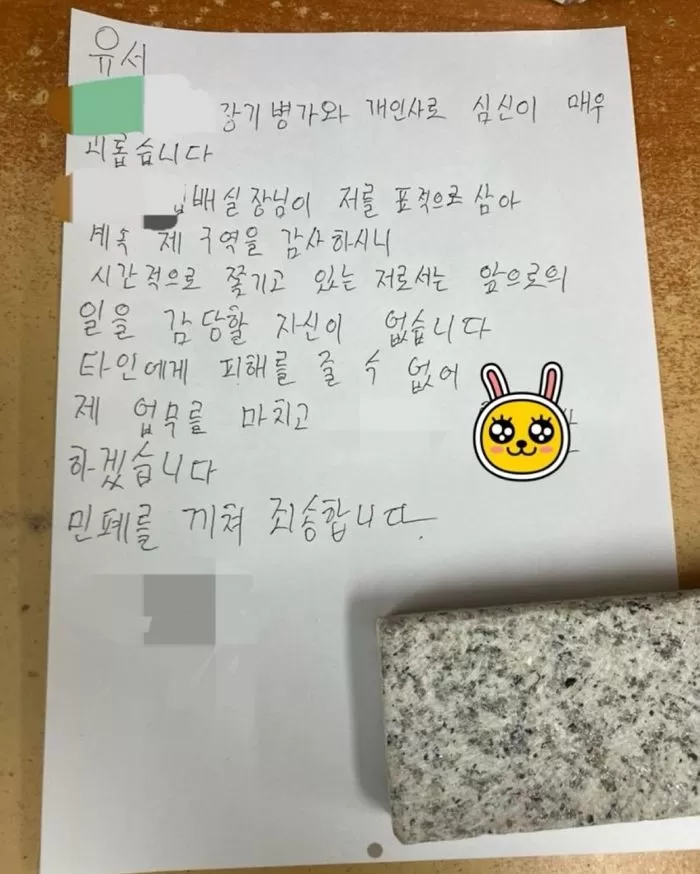 유서
장기병가와 개인사로 심신이 매우
괴롭습니다
배실장님이 저를 표적으로 삼아
계속 제 구역을 감사하시니
시간적으로 쫓기고 있는 저로서는 앞으로의
일을 감당할 자신이 없습니다
타인에게 피해를 줄 수 없어
제 업무를 마치고
하겠습니다
민폐를 끼쳐 죄송합니다.